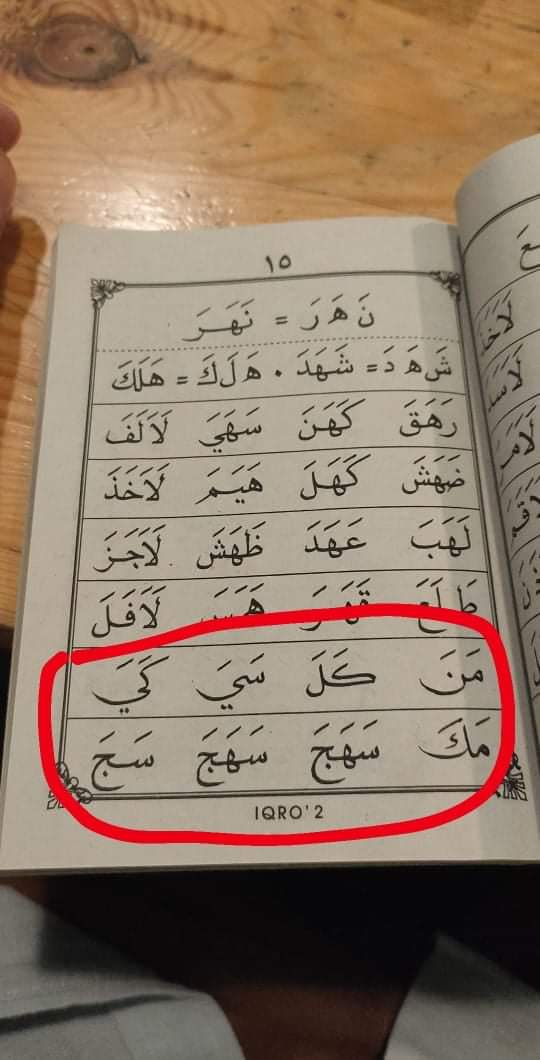 ١٥
نَ هَ رَ = نَهَرَ
شَ هَ دَ = شَهَدَ . هَ لَ كَ = هَلَكَ
رَهَقَ كَهَنَ سَهَيَ لَاَلَفَ
ضَهَشَ كَهَلَ هَيَمَ لَاَخَذَ
لَهَبَ عَهَدَ ظَهَشَ لَاَجَزَ
طَلَعَ قَهَرَ هَمَسَ لَاَفَلَ
مَنَ كَلَ سَيَ كَيَ
مَكَ سَهَجَ سَهَجَ سَجَ
IQRO'2
لَاَخَذَ